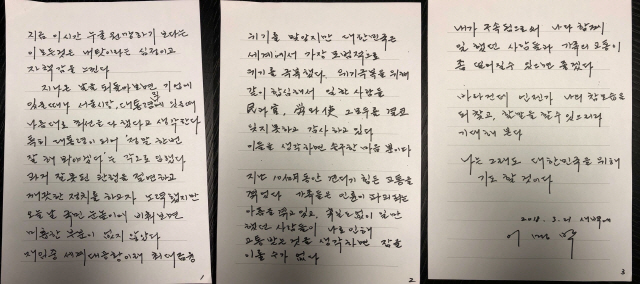 지금 이 시간 누굴 원망하기 보다는
이 모든것은 내 탓이라는 심정이고
자책감을 느낀다
지나온 날을 되돌아보면, 기업에
있을때나 서울시장, 대통령직에 있을때
나름대로 최선을 다 했다고 생각한다
특히 대통령이 되어 "정말 한번
잘 해 봐야겠다"는 각오로 임했다
과거 잘못된 관행을 절연하고
깨끗한 정치를 하고자 노력했지만
오늘 날 국민 눈높이에 비춰보면
미흡한 부분이 없지 않았다
재임중 세계대공황이래 최대 금융
1
위기를 맞았지만 대한민국은
세계에서 가장 모범적으로
위기를 극복했다. 위기극복을 위해
같이 합심해서 일 한 사람들
民과 官, 勞와 使 그 모두를 결코
잊지 못하고 감사하고 있다
이들을 생각하면 송구한 마음 뿐이다
지난 10개월 동안 견디기 힘든 고통을
겪었다. 가족들은 인륜이 파괴되는
아픔을 겪고 있고, 휴일도 없이 일만
했던 사람들이 나로 인해
고통받는 것을 생각하면 잠을
이룰 수가 없다
2
내가 구속됨으로써 나와 함께
일 했던 사람들과 가족의 고통이
좀 덜어질수 있으면 좋겠다
바라건데 언젠가 나의 참모습을
되찾고, 할 말을 할 수 있으리라
기대해 본다
나는 그래도 대한민국을 위해
기도 할 것이다
2018. 3. 21 새벽에
이 명 박
3